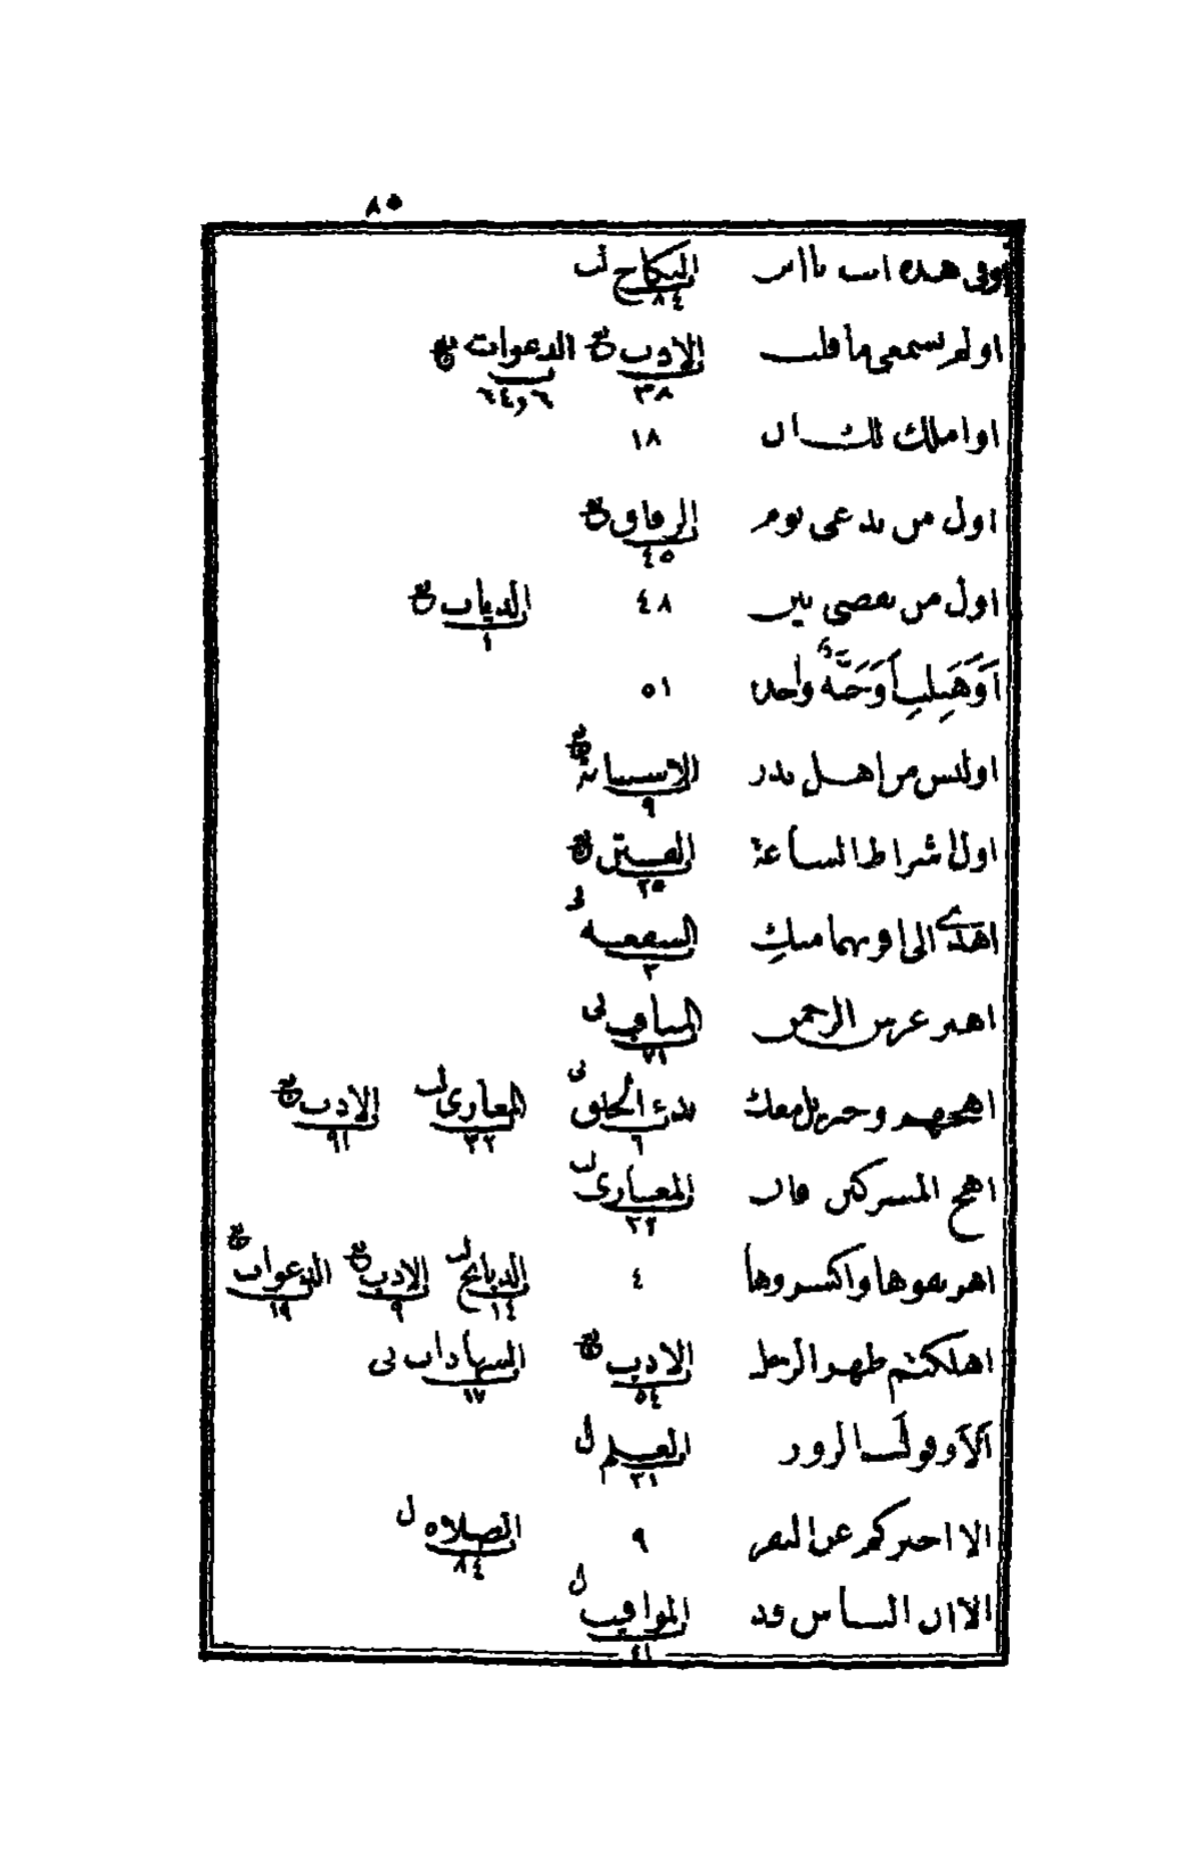 ٨٥
وفى هذه انت يا ابن النكاح ٨٤
اولم تسمعى ما قلت الادب ٣٨ الدعوات ٦ و ٦٤
او املك لك ان ١٨
اول من يدعى يوم الرقاق ٤٥
اول من يقضى بين ٤٨ الديات ١
أَوَهَبِلتِ أَوَجَنَّةٌ واحدة ٥١
اوليس من اهل بدر الاستتابة ٩
اول اشراط الساعة الفتن ٢٥
الى اقربهما منكِ الشفعه ٢
اهتز عرش الرحمن المناقب ٧١
اهجهم وجبريل معك بدء الخلق ٦ المغازى ٣٢ الادب ٩١
اهج المشركين فان المغازى ٣٢
اهريقوها واكسروها ٤ الذبايح ١٤ الادب ٩ الدعوات ١٩
اهلكتم ظهر الرجل الادب ٥٤ الشهادات ١٧
ألا وقول الزور العلم ٣١
الا اخبركم عن النفر ٩ الصلاه ٨٤
الا ان الناس قد المواقيت ٤١